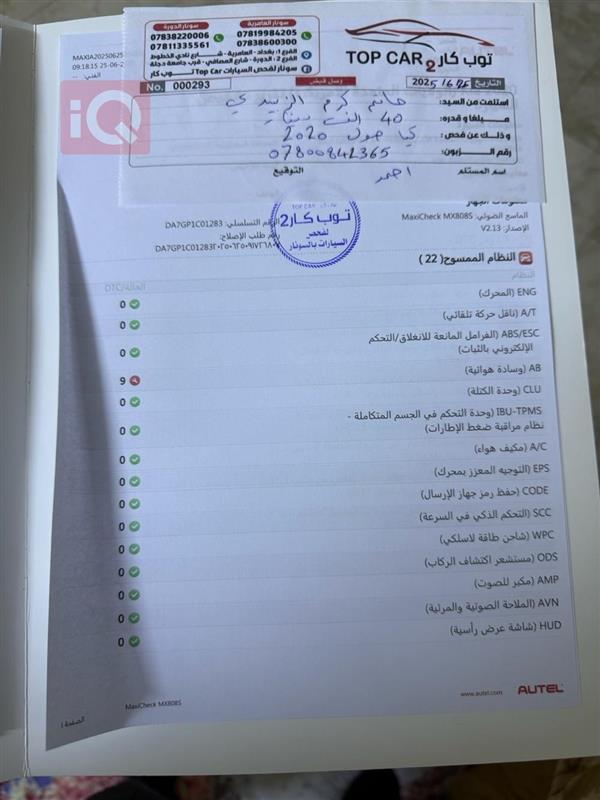 MAXIA20250625
09:18.15 25-06-2
الفني: --
سونار الدورة
سونار العامرية
07838220006
07811335561
07819984205
07838600300
الفرع 1: بغداد - العامرية - شارع نادي الخطوط
الفرع 2: الدورة - شارع المصافي - قرب جامعة دجلة
سونار لفحص السيارات Top Car تـــوب كار
توب كار 2
TOP CAR 2
No. 000293
وصل قبض
التاريخ 2025/6/25
استلمت من السيد: حاتم كرم الزبيدي
مـبـلغا و قدره: 40 الف دينار
و ذلك عن فحص: كيا 2020
رقم الـــزبون: 07800842365
اسم المستلم احمد
التوقيع
iQ
TOPCAR
توب كار2
لفحص
السيارات بالسونار
معلومات الجهاز
الماسح الضوئي: MaxiCheck MX808S
الرقم التسلسلي: DA7GP1C01283
الإصدار: V2.13
رقم طلب الإصلاح:
النظام الممسوح( 22 )
النظام
الحالة/DTC
ENG (المحرك)
0
A/T (ناقل حركة تلقائي)
0
ABS/ESC (الفرامل المانعة للانغلاق/التحكم
الإلكتروني بالثبات)
0
AB (وسادة هوائية)
9
CLU (وحدة الكتلة)
0
IBU-TPMS (وحدة التحكم في الجسم المتكاملة -
نظام مراقبة ضغط الإطارات)
0
A/C (مكيف هواء)
0
EPS (التوجيه المعزز بمحرك)
0
CODE (حفظ رمز جهاز الإرسال)
0
SCC (التحكم الذكي في السرعة)
0
WPC (شاحن طاقة لاسلكي)
0
ODS (مستشعر اكتشاف الركاب)
0
AMP (مكبر للصوت)
0
AVN (الملاحة الصوتية والمرئية)
0
HUD (شاشة عرض رأسية)
0
www.autel.com
AUTEL
MaxiCheck MX808S
الصفحة 1